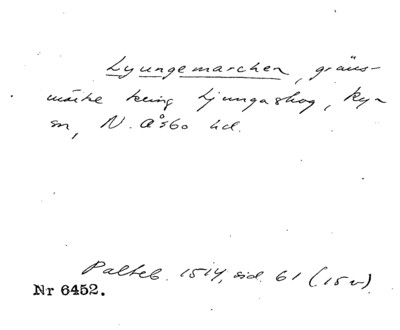 Lyungemarchen, gräns-
märke kring Ljungaskog, Ryn
sn, N. Åsbo hd.
Palteb. 1514, sid. 61 (15v).
Nr 6452.